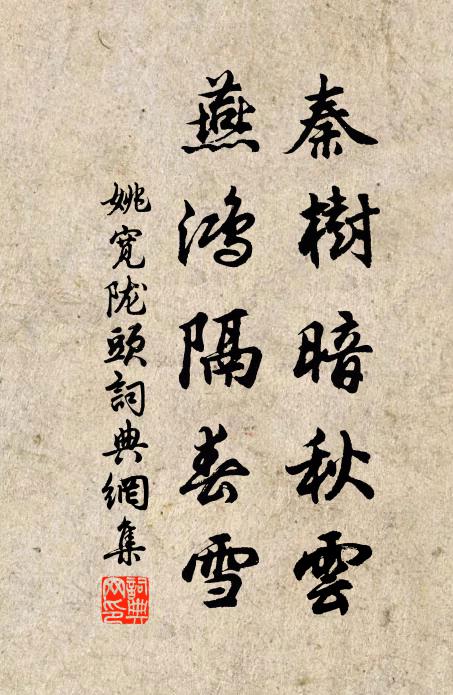 秦樹暗秋雲
燕鴻隔春雪
姚寬陇頭詞典網集
詞典网印